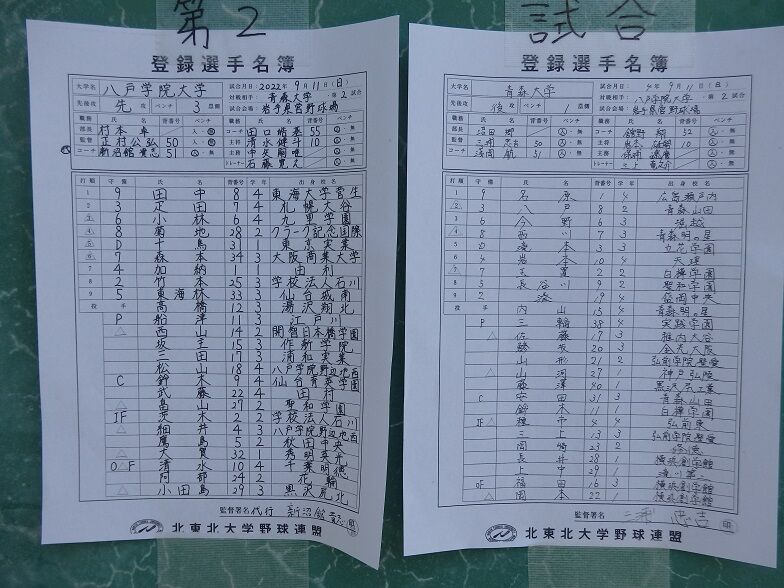 第2
試合
登録選手名簿
大学名 八戸学院大学
試合月日: 2022年9月11日(日)
先後攻 先攻 ベンチ 3塁側
対戦相手: 青森大学 第2試合
試合会場: 岩手県営野球場
職務 氏名 背番号 ベンチ
部長 村本卓 人・無
監督 正村公弘 50 人・無
コーチ 新沼舘貴志 51 人・無
職務 氏名 背番号 ベンチ
コーチ 田口 55 人・無
主将 清水健斗 10 人・無
トレーナー 石藤寛人 人・無
打順 守備 氏名 背番号 学年 出身校名
1 9 田中 8 4 東海大学菅生
2 3 疋田 7 4 札幌大谷
3 6 小林 6 4 九里学園
4 8 菊地 28 2 クラーク記念国際
5 D 十島 31 3 東京実業
6 7 森本 34 3 大阪商業大学
7 4 加納 1 1 由利
8 2 竹本 25 3 学校法人石川
9 5 東海林 33 3 仙台城南
投手 高橋 12 3 湯沢翔北
P 船津 11 3 江戸川
西山 14 2 開智日本橋学園
坂主 15 3 作新学院
三田 17 3 浦和実業
松山 18 4 八戸学院野辺地西
C 鈴木 9 4 仙台育英学園
武藤 22 4 田村
畠山 27 2 聖和学園
IF 茨木 2 2 学校法人石川
細井 4 3 八戸学院野辺地西
鷹島 5 2 秋田中央
大賀 32 1 秀明英光
OF 清水 10 4 千葉明徳
阿部 24 2 花輪
小田島 29 3 黒沢尻北
監督署名 代行 新沼舘貴志 印
北東北大学野球連盟
登録選手名簿
大学名 青森大学
試合月日: 4年9月11日(日)
先後攻 後攻 ベンチ 1塁側
対戦相手: 八戸学院大学 第2試合
試合会場: 岩手県営野球場
職務 氏名 背番号 ベンチ
部長 沼田 人・無
監督 三浦忠吉 50 人・無
コーチ 浅岡航 51 人・無
職務 氏名 背番号 ベンチ
コーチ 52 人・無
主将 10 人・無
トレーナー 三上 人・無
打順 守備 氏名 背番号 学年 出身校名
1 9 石原 1 4 広島瀬戸内
2 3 八戸 8 2 青森山田
3 6 今野 6 3 堀越
4 8 西川 7 3 青森明の星
5 D 湊本 3 3 立花学園
6 4 岩本 10 4 天理
7 7 玉置 2 2 白樺学園
8 3 長谷川 9 2 聖和学園
9 2 湊 19 4 盛岡中央
投手 内山 15 4 青森明の星
P 三輪 38 4 実践学園
佐藤 17 3 稚内大谷
鯵坂 20 3 金光大阪
山形 21 2 弘前学院聖愛
山河 27 1 神戸弘陵
藤澤 40 1 黒沢尻工業
C 安田 31 3 青森山田
鈴木 11 1 白樺学園
IF 種市 4 4 弘前東
三上 13 3 弘前学院聖愛
岡崎 23 2 修徳
長井 28 1 横浜創学館
上中 29 1 滝川第二
OF 福田 16 3 横浜創学館
岡本 22 1
監督署名 三浦忠吉 印
北東北大学野球連盟